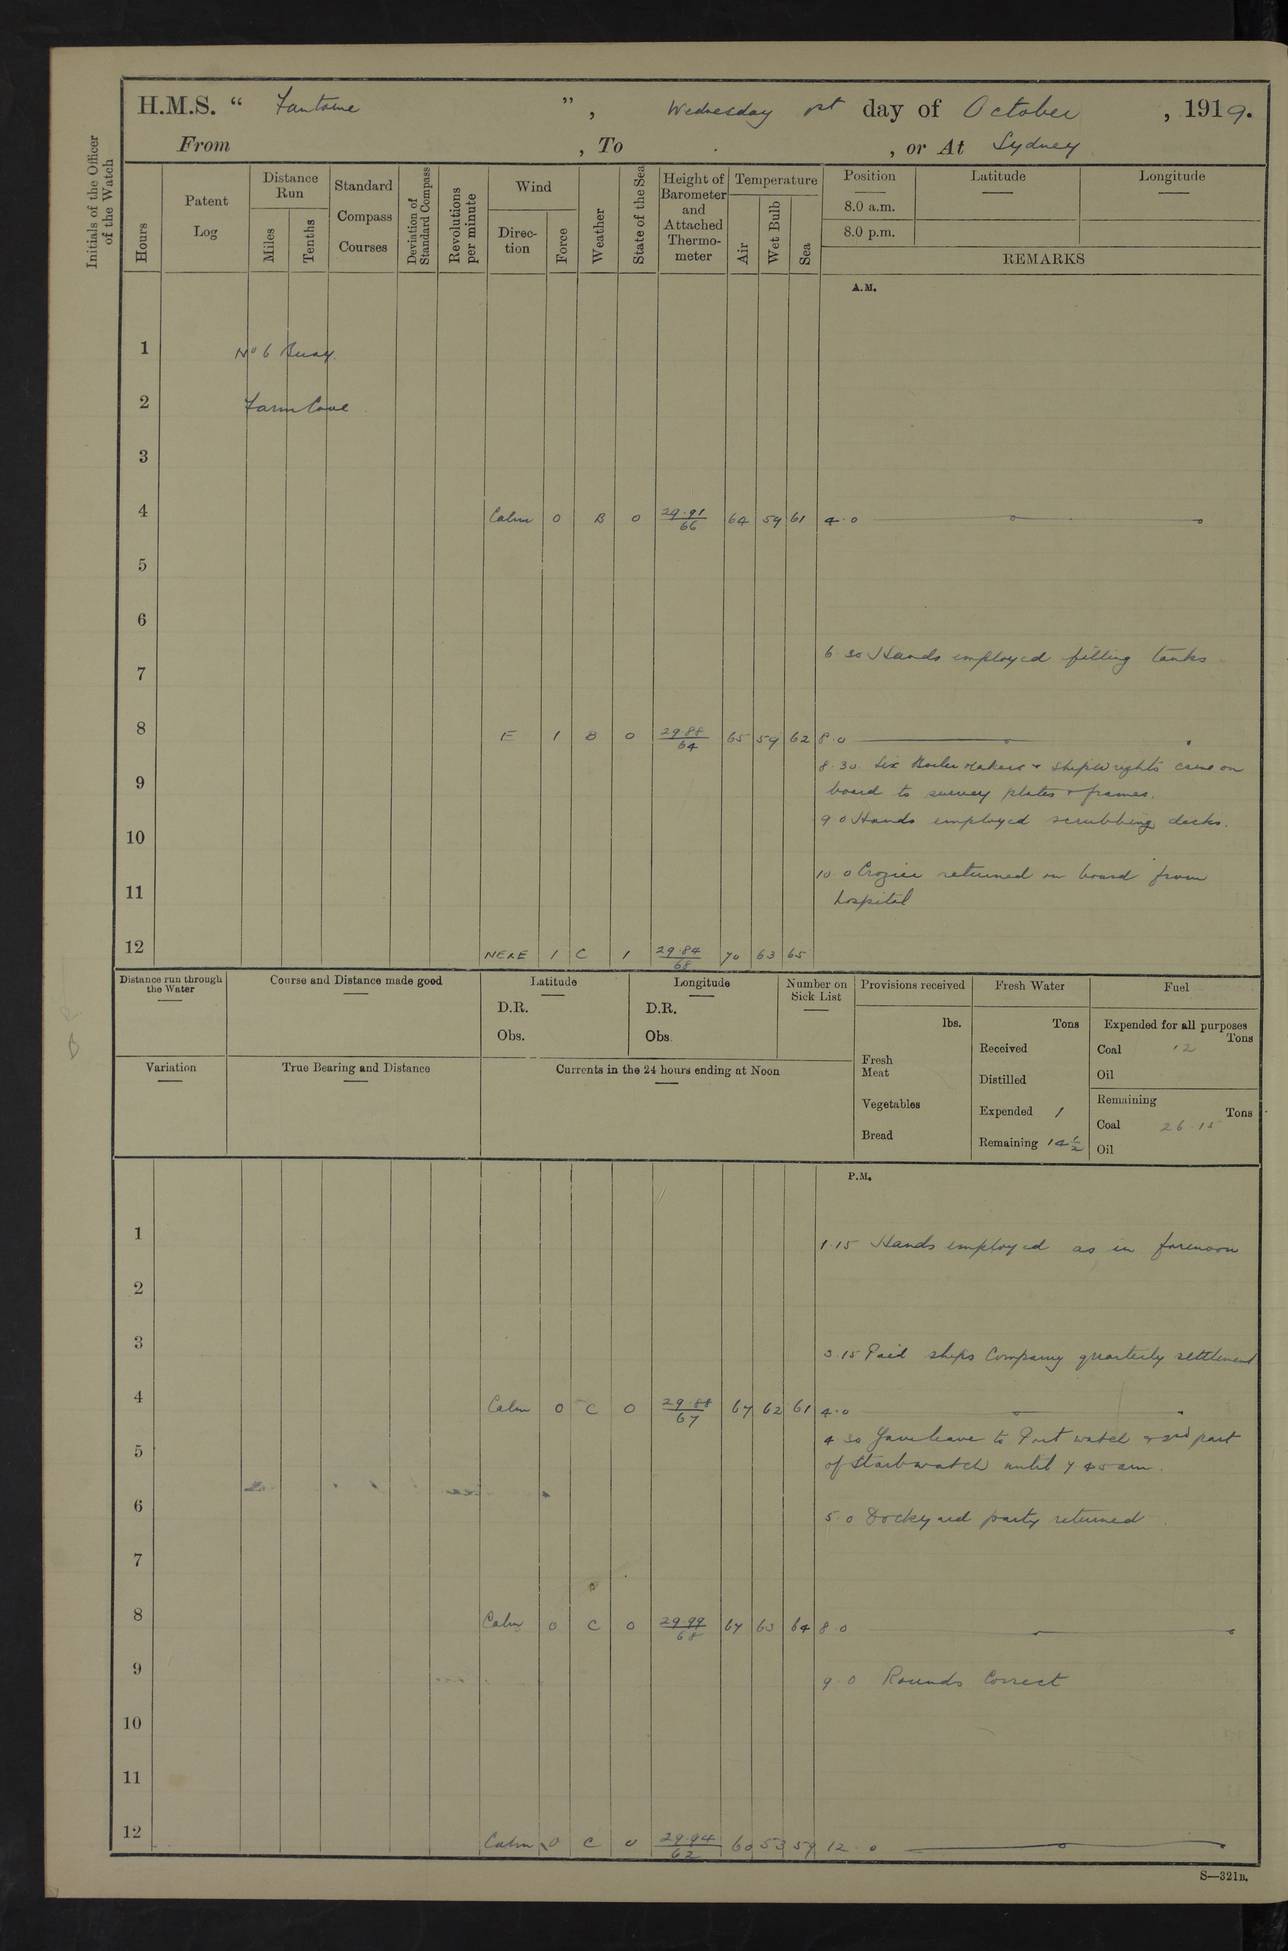 H.M.S. “ Fantome ”, Wednesday 1st day of October, 1919.
From , To , or At Sydney
Initials of the Officer of the Watch
Hours
Patent Log
Distance Run
Miles
Tenths
Standard Compass Courses
Deviation of Standard Compass
Revolutions per minute
Wind
Direction
Force
Weather
State of the Sea
Height of Barometer and Attached Thermometer
Temperature
Air
Wet Bulb
Sea
Position
8.0 a.m.
8.0 p.m.
Latitude
Longitude
REMARKS
A.M.
1 No 6 Buoy.
2 Farm Cove
3
4 Calm 0 B 0 29.91/66 64 59 61 4.0
5
6
6 30 Hands employed filling tanks
7
8 E 1 B 0 29.88/64 65 59 62 8.0
8.30. Six Boiler makers + Shipwrights came on
9
board to survey plates + frames.
9 0 Hands employed scrubbing decks.
10
10 0 Crozier returned on board from
11
hospital
12 NExE 1 C 1 29.84/68 70 63 65
Distance run through the Water
Course and Distance made good
Latitude
D.R.
Obs.
Longitude
D.R.
Obs.
Number on Sick List
Provisions received
lbs.
Fresh Meat
Vegetables
Bread
Fresh Water
Tons
Received
Distilled
Expended 1
Remaining 14½
Fuel
Expended for all purposes
Tons
Coal 12
Oil
Remaining
Tons
Coal 26.15
Oil
Variation
True Bearing and Distance
Currents in the 24 hours ending at Noon
P.M.
1
1.15 Hands employed as in forenoon
2
3
3.15 Paid ships Company quarterly settlement
4 Calm 0 C 0 29.88/67 67 62 61 4.0
4 30 Gave leave to Port watch + 2nd part
5
of Starb watch until 7 45 am.
6
5.0 Dockyard party returned
7
8 Calm 0 C 0 29.99/68 67 63 64 8.0
9
9.0 Rounds Correct
10
11
12 Calm 0 C 0 29.94/62 60 53 59 12.0
S—321B.